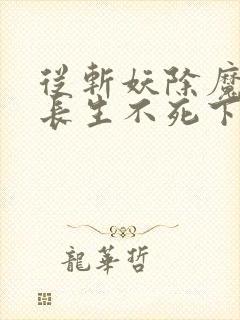 從斬妖除魔
長生不死下
龍華哲